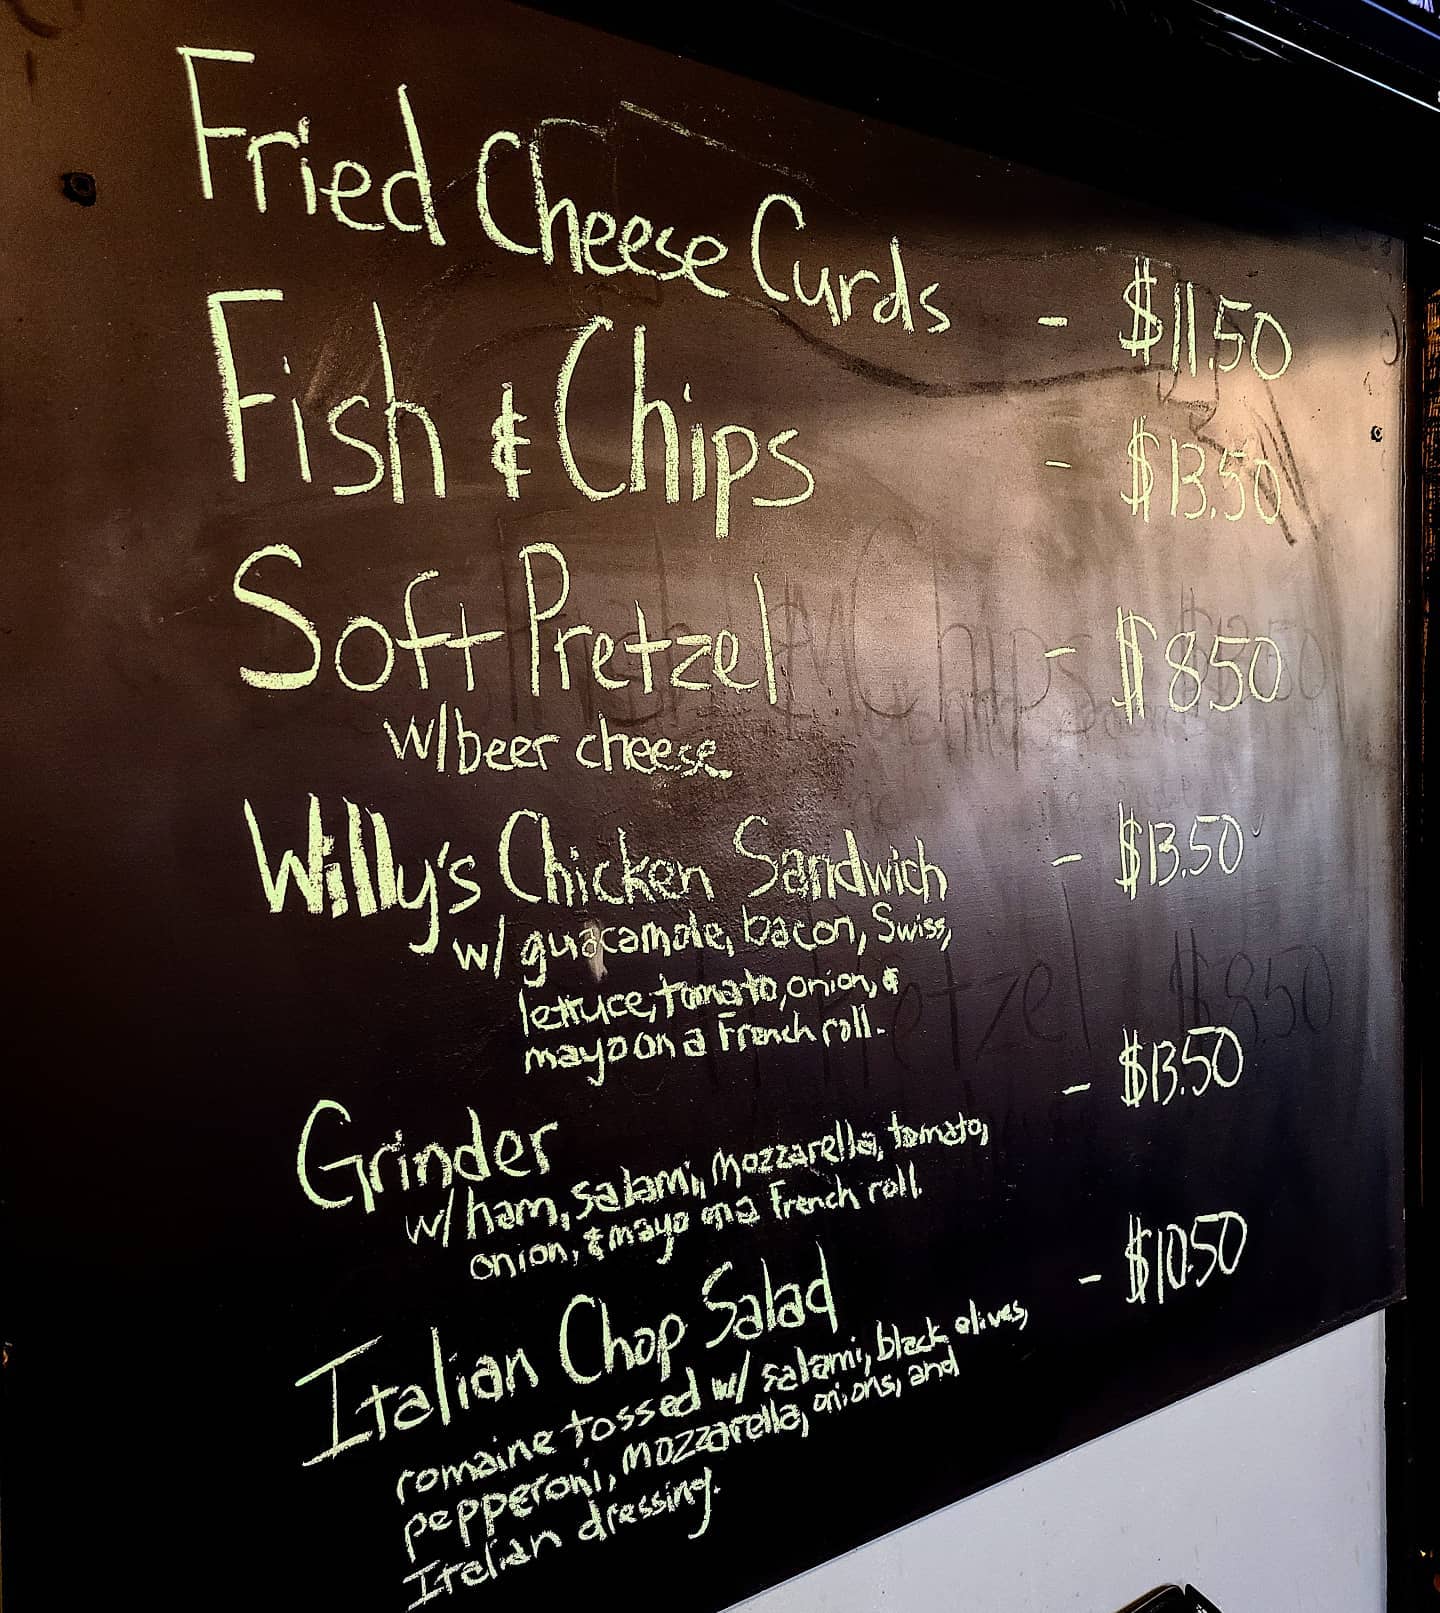 Fried Cheese Curds - $11.50
Fish & Chips - $13.50
Soft Pretzel - $8.50
w/beer cheese
Willy's Chicken Sandwich - $13.50
w/ guacamole, bacon, Swiss,
lettuce, tomato, onion, &
mayo on a French roll.
Grinder - $13.50
w/ ham, salami, mozzarella, tomato,
onion, & mayo on a French roll.
Italian Chop Salad - $10.50
romaine tossed w/ salami, black olives,
pepperoni, mozzarella, onions, and
Italian dressing.